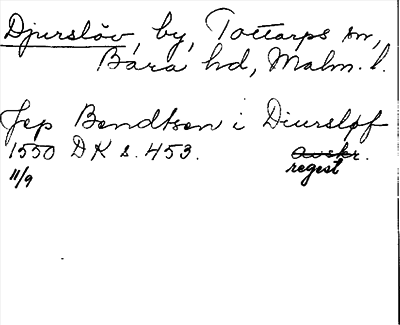 Djurslöv, by, Tottarps sn,
Bara hd, Malm. l.
Jep Bendtsen i Diursløf
1550 DK s. 453. avskr.
11/9 regest